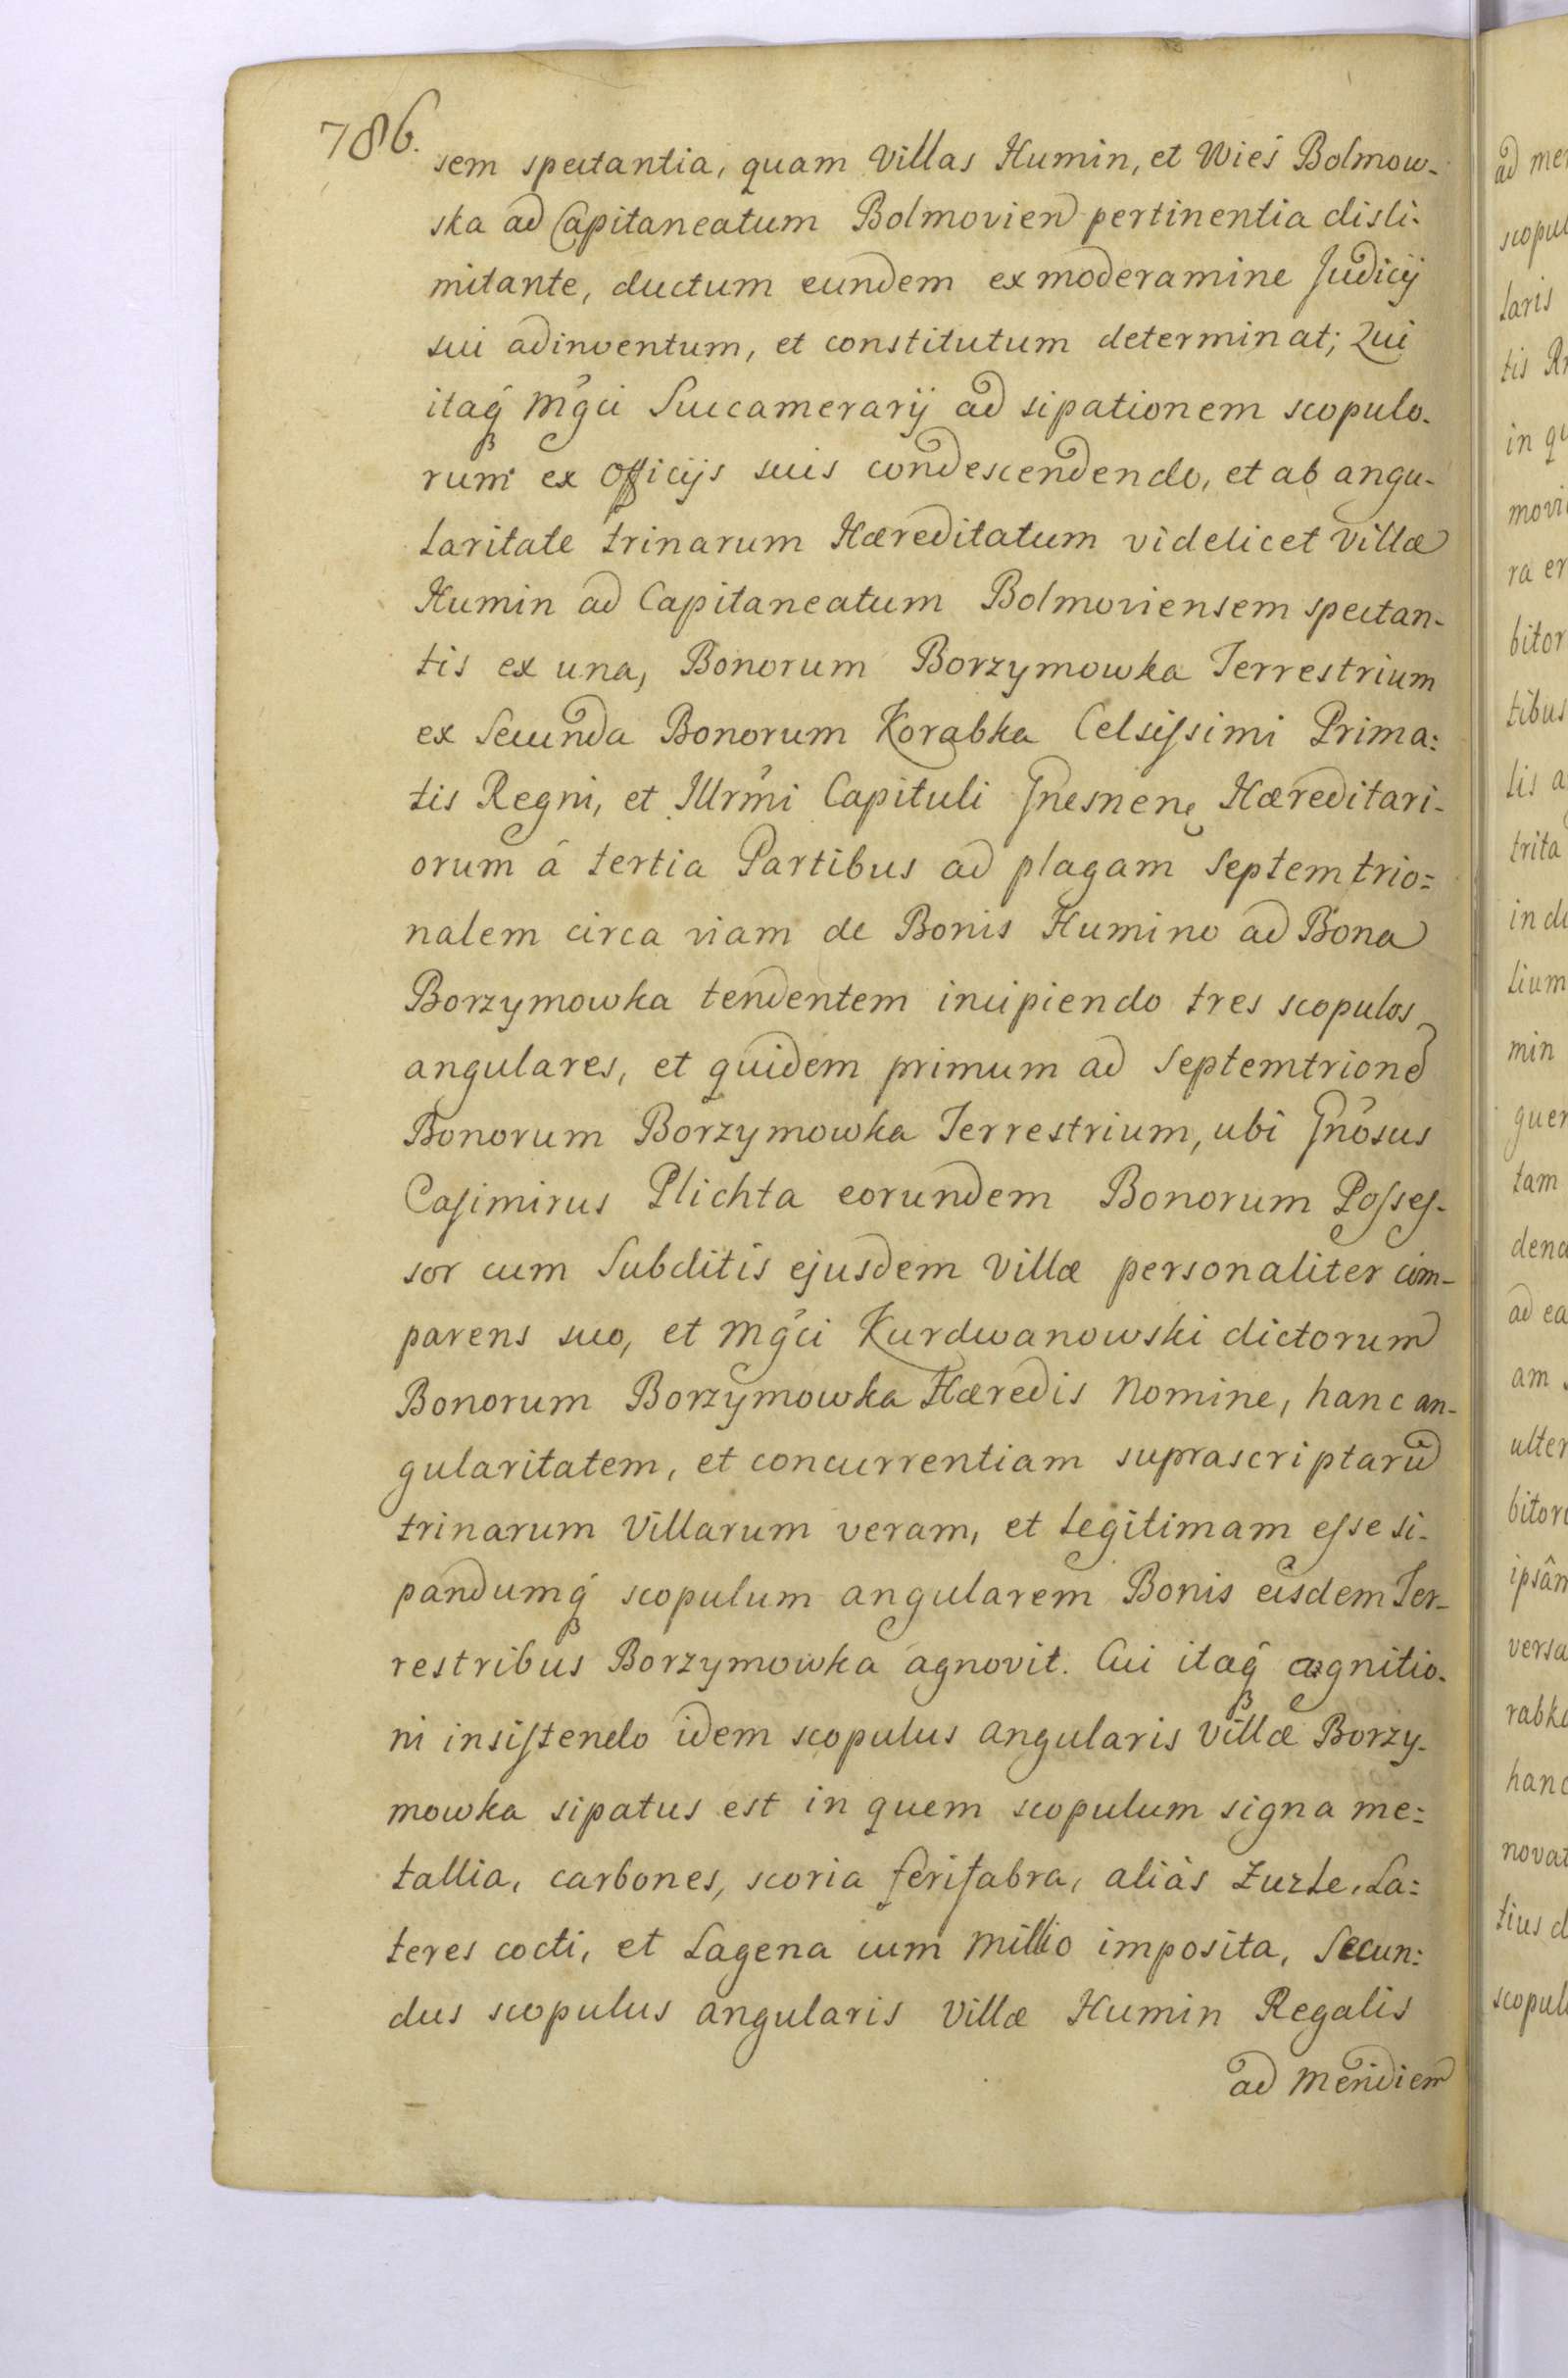 786.
sem spectantia, quam Villas Humin, et Wieś Bolmow-
ska ad Capitaneatum Bolmovien pertinentia disli-
mitante, ductum eundem ex moderamine Judicij
sui adinventum, et constitutum determinat; Qui
itaq́ Mǵci Succamerarij ad sipationem scopulo-
rum ex Officijs suis condescendendo, et ab angu-
laritate trinarum Hæreditatum videlicet Villæ
Humin ad Capitaneatum Bolmoviensem spectan-
tis ex una, Bonorum Borzymowka Terrestrium
ex Secunda Bonorum Korabka Celsiſsimi Prima:
tis Regni, et Illrḿi Capituli Gnesnenę Hæreditari-
orum á tertia Partibus ad plagam Septemtrio=
nalem circa viam de Bonis Humino ad Bona
Borzymowka tendentem incipiendo tres scopulos
angulares, et quidem primum ad Septemtrione
Bonorum Borzymowka Terrestrium, ubi Gńosus
Caſimirus Plichta eorundem Bonorum Poſseſ-
sor cum Subditis ejusdem Villæ personaliter com-
parens suo, et Mǵci Kurdwanowski dictorum
Bonorum Borzymowka Hæredis Nomine, hanc an-
gularitatem, et concurrentiam suprascriptarū
trinarum Villarum veram, et legitimam eſse si-
pandumq́ scopulum angularem Bonis eisdem Ter-
restribus Borzymowka agnovit. Cui itaq́ agnitio-
ni insiſtendo idem scopulus angularis Villæ Borzy-
mowka sipatus est in quem scopulum signa me=
tallia, carbones, scoria ferifabra, aliàs Zuzle, La=
teres cocti, et Lagena cum Millio imposita, Secun:
dus scopulus angularis Villæ Humin Regalis
ad Meridiem
ad me
scopul
laris
tis
in qu
movi
ra er
bitor
tibus
lis a
trita
inde
lium
min
guer
tam
dena
ad ea
am
ulter
bitor
ipsâm
versa
rabka
hanc
novat
tius d
scopul